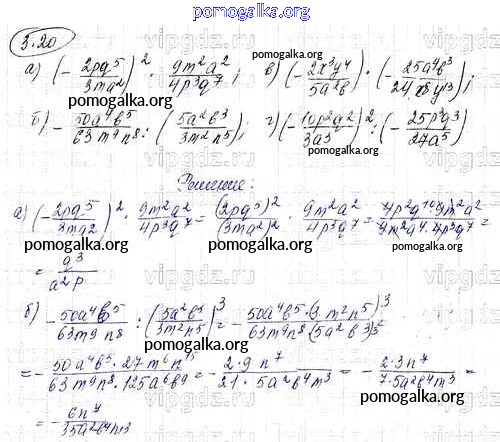 pomogalka.org
5.20
а) (-2pq^5/3ma^2)^2 · 9m^2a^2/4p^3q^7; в) (-2x^3y^4/5a^2b) · (-25a^4b^3/24x^8y^13);
pomogalka.org
б) -50a^4b^5/63m^9n^8 : (5a^2b^3/3m^2n^5); г) (-10p^2q^2/3a^3)^2 : (-25p^3q^3/27a^5)
pomogalka.org
Решение:
а) (-2pq^5/3ma^2)^2 · 9m^2a^2/4p^3q^7 = (2pq^5)^2/(3ma^2)^2 · 9m^2a^2/4p^3q^7 = 4p^2q^10·9m^2a^2/9m^2a^4·4p^3q^7 =
pomogalka.org
= q^3/a^2p
pomogalka.org
б) -50a^4b^5/63m^9n^8 : (5a^2b^3/3m^2n^5)^3 = -50a^4b^5·(3m^2n^5)^3/63m^9n^8(5a^2b^3)^3 =
= -50a^4b^5·27m^6n^15/63m^9n^8·125a^6b^9 = -2·9n^7/21·5a^2b^4m^3 = -2·3n^7/7·5a^2b^4m^3 =
pomogalka.org
= -6n^7/35a^2b^4m^3